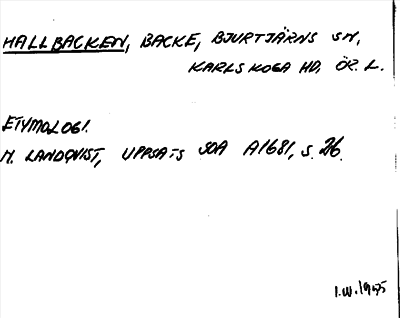 HALLBACKEN, BACKE, BJURTJÄRNS SN,
KARLSKOGA HD, ÖR. L.
ETYMOLOGI.
M. LANDQVIST, UPPSATS SOA A1681, S. 26.
1975